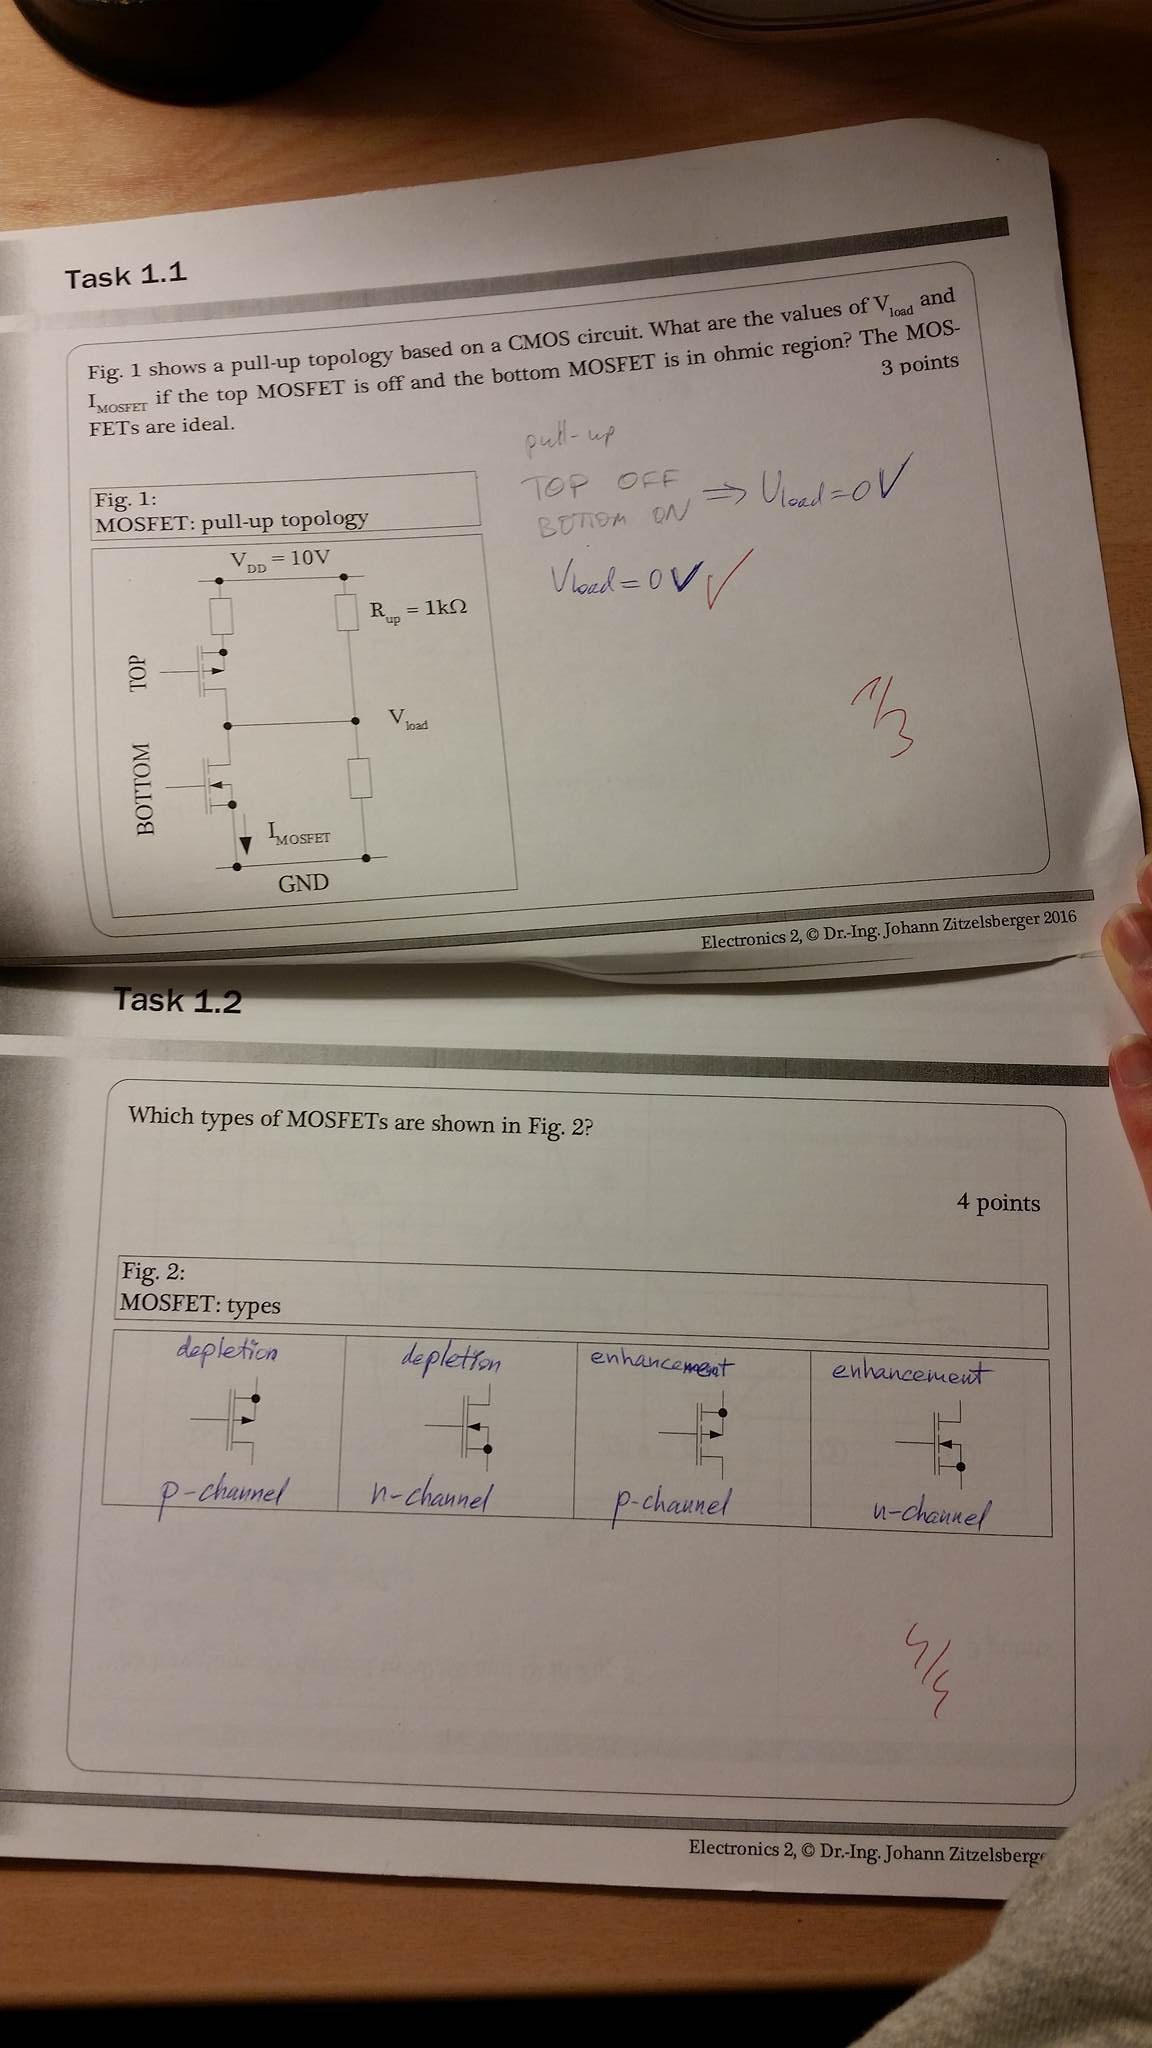 Task 1.1
Fig. 1 shows a pull-up topology based on a CMOS circuit. What are the values of Vload and
IMOSFET if the top MOSFET is off and the bottom MOSFET is in ohmic region? The MOS-
FETs are ideal.
3 points
pull-up
TOP OFF
BOTTOM ON
⇒ Uload = 0V
Vload = 0V ✓
1/3
Fig. 1:
MOSFET: pull-up topology
VDD = 10V
Rup = 1kΩ
TOP
Vload
BOTTOM
IMOSFET
GND
Electronics 2, © Dr.-Ing. Johann Zitzelsberger 2016
Task 1.2
Which types of MOSFETs are shown in Fig. 2?
4 points
Fig. 2:
MOSFET: types
depletion depletion enhancement enhancement
p-channel n-channel p-channel n-channel
4/4
Electronics 2, © Dr.-Ing. Johann Zitzelsberge